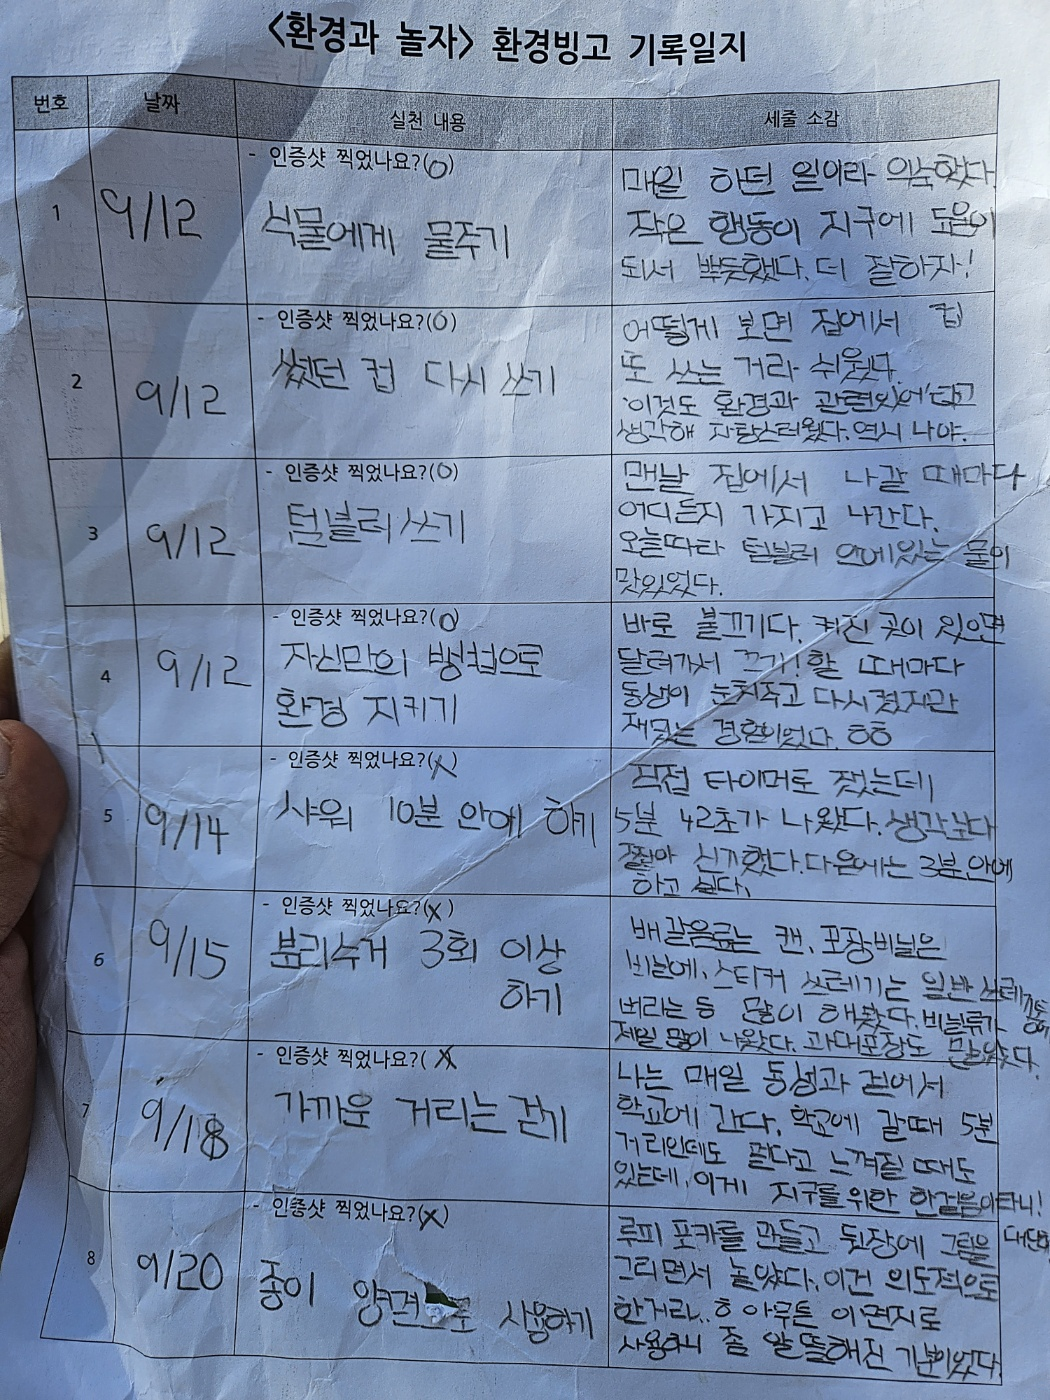 <환경과 놀자> 환경빙고 기록일지
번호 날짜 실천 내용 세줄 소감
1
9/12
- 인증샷 찍었나요?(O)
식물에게 물주기
매일 하던 일이라 익숙했다.
작은 행동이 지구에 도움이
되서 뿌듯했다. 더 잘하자!
2
9/12
- 인증샷 찍었나요?(O)
썼던 컵 다시 쓰기
어떻게 보면 집에서 컵
또 쓰는 거라 쉬웠다.
'이것도 환경과 관련있어'라고
생각해 자랑스러웠다. 역시 나야.
3
9/12
- 인증샷 찍었나요?(O)
텀블러 쓰기
맨날 집에서 나갈 때마다
어디든지 가지고 나간다.
오늘따라 텀블러 안에있는 물이
맛있었다.
4
9/12
- 인증샷 찍었나요?(O)
자신만의 방법으로
환경 지키기
바로 불끄기다. 켜진 곳이 있으면
달려가서 끄기! 할 때마다
동생이 눈치주고 다시켰지만
재밌는 경험이었다. ㅎㅎ
5
9/14
- 인증샷 찍었나요?(X)
샤워 10분 안에 하기
직접 타이머도 쟀는데
5분 42초가 나왔다. 생각보다
짧아 신기했다. 다음에는 3분 안에
하고 싶다.
6
9/15
- 인증샷 찍었나요?(X)
분리수거 3회 이상
하기
배 갈음료는 캔, 포장비닐은
비닐에, 스티커 쓰레기는 일반쓰레기통에
버리는 등 많이 해봤다. 비닐류가
제일 많이 나왔다. 과대포장도 많았다.
7
9/18
- 인증샷 찍었나요?(X)
가까운 거리는 걷기
나는 매일 동생과 걸어서
학교에 간다. 학교에 갈때 5분
거리인데도 멀다고 느껴질 때도
있는데, 이게 지구를 위한 한걸음이라니!
8
9/20
- 인증샷 찍었나요?(X)
종이 양면으로 사용하기
루피 포카를 만들고 뒷장에 그림을
그리면서 놀았다. 이건 의도적으로
한거라.. ㅎ 아무튼 이면지로
사용하니 좀 알뜰해진 기분이었다